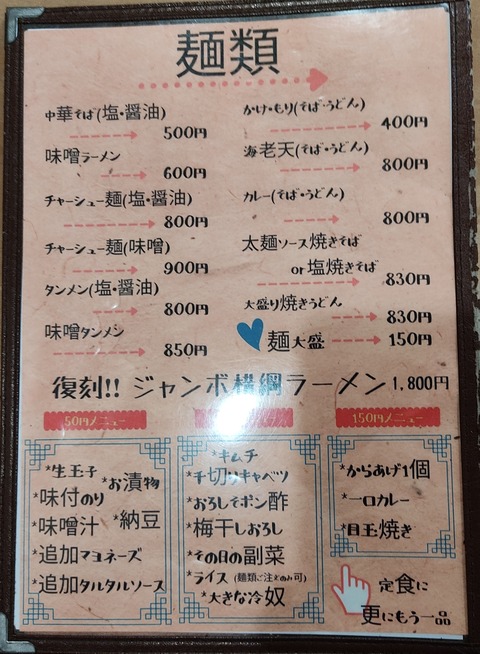 麺類
中華そば(塩・醤油)
500円
味噌ラーメン
600円
チャーシュー麺(塩・醤油)
800円
チャーシュー麺(味噌)
900円
タンメン(塩・醤油)
800円
味噌タンメン
850円
かけ・もり(そば・うどん)
400円
海老天(そば・うどん)
800円
カレー(そば・うどん)
800円
太麺ソース焼きそば
or塩焼きそば
830円
大盛り焼きうどん
830円
麺大盛
150円
復刻!! ジャンボ横綱ラーメン 1,800円
50円メニュー
*生玉子
*お漬物
*味付のり
*味噌汁
*納豆
*追加マヨネーズ
*追加タルタルソース
*キムチ
*千切りキャベツ
*おろしそポン酢
*梅干しおろし
*その日の副菜
*ライス(麺類ご注文のみ可)
*大きな冷奴
150円メニュー
*からあげ1個
*一口カレー
*目玉焼き
定食に
更にもう一品